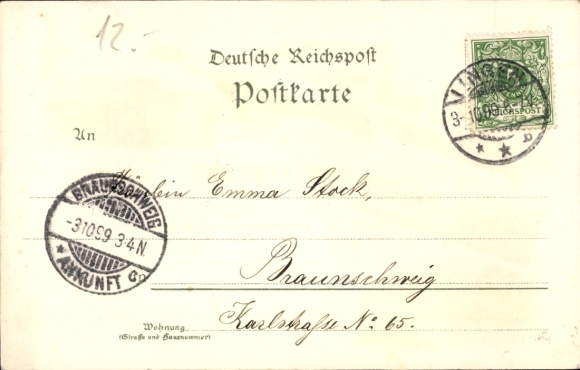 12.-
Deutsche Reichspost
Postkarte
LINGEN
3-10.99
REICHSPOST
An
Fräulein Emma Stock,
BRAUNSCHWEIG
-31099 3-4N.
* ANKUNFT
Braunschweig
Karlstraße No 65.
Wohnung
(Straße und Hausnummer)